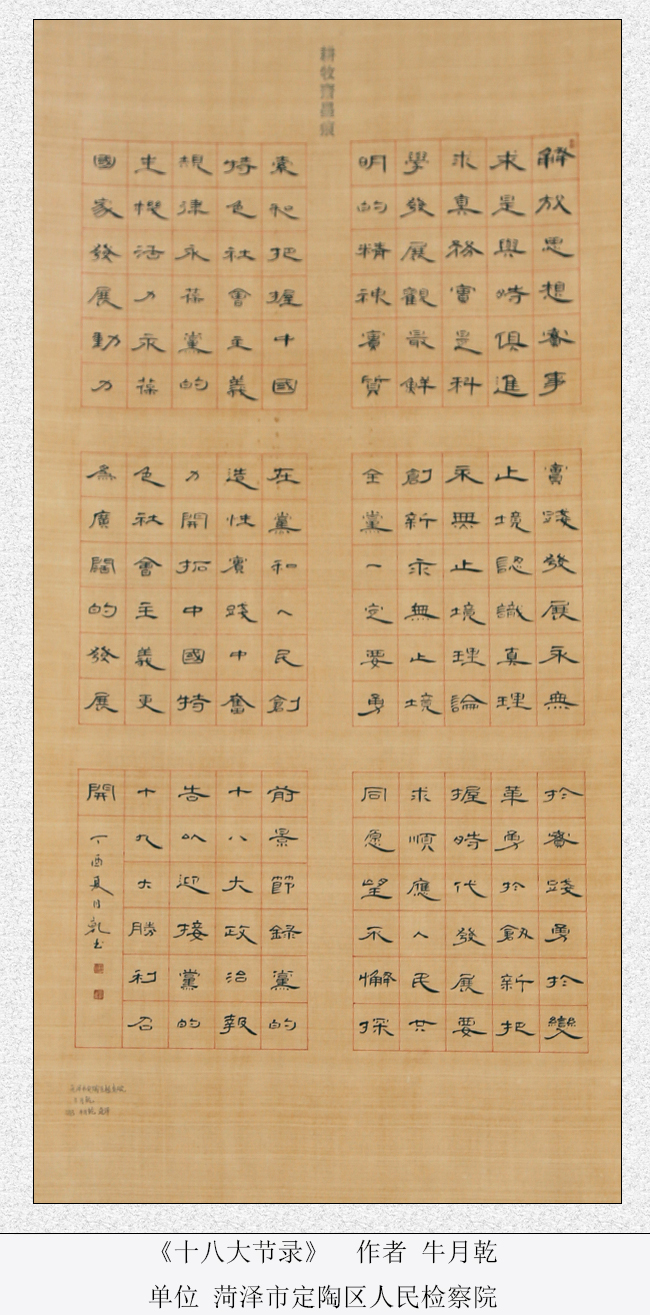 解放思想實事
求是與時俱進
求真務實是科
學發展觀最鮮
明的精神實質
實踐發展永無
止境認識真理
永無止境理論
創新永無止境
全黨一定要勇
於實踐勇於變
革勇於創新把
握時代發展要
求順應人民共
同愿望不懈探
索和把握中國
特色社會主義
規律永葆黨的
生機活力永葆
國家發展動力
在黨和人民創
造性實踐中奮
力開拓中國特
色社會主義更
為廣闊的發展
前景節錄黨的
十八大政治報
告以迎接黨的
十九大勝利召
開
丁酉夏月乾書
《十八大节录》 作者 牛月乾
单位 菏泽市定陶区人民检察院